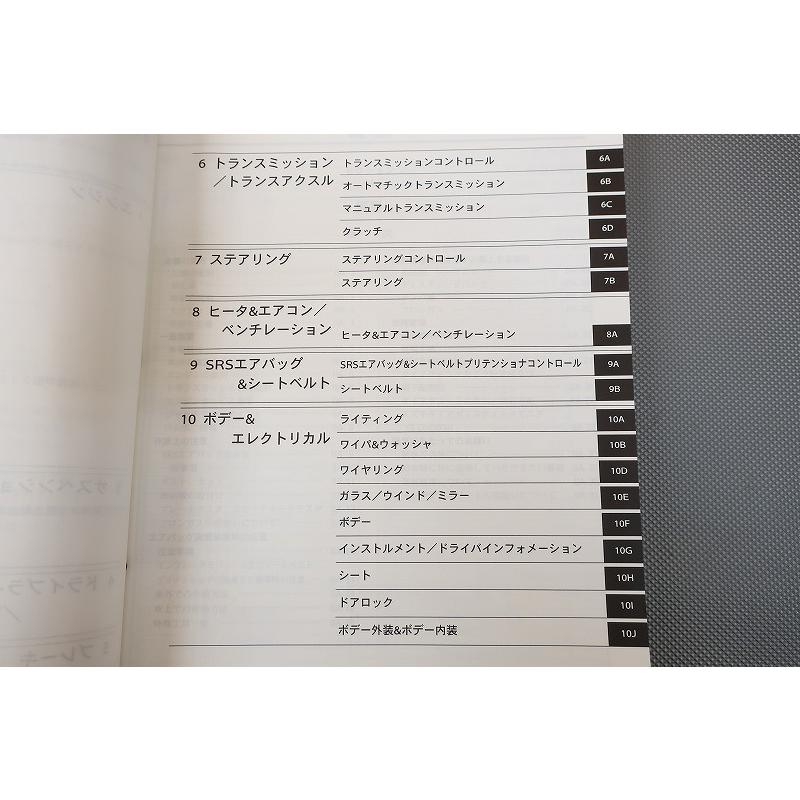 6 トランスミッション
／トランスアクスル
トランスミッションコントロール 6A
オートマチックトランスミッション 6B
マニュアルトランスミッション 6C
クラッチ 6D
7 ステアリング
ステアリングコントロール 7A
ステアリング 7B
8 ヒータ&エアコン／
ベンチレーション
ヒータ&エアコン／ベンチレーション 8A
9 SRSエアバッグ
&シートベルト
SRSエアバッグ&シートベルトプリテンショナコントロール 9A
シートベルト 9B
10 ボデー&
エレクトリカル
ライティング 10A
ワイパ&ウォッシャ 10B
ワイヤリング 10D
ガラス／ウインド／ミラー 10E
ボデー 10F
インストルメント／ドライバインフォメーション 10G
シート 10H
ドアロック 10I
ボデー外装&ボデー内装 10J